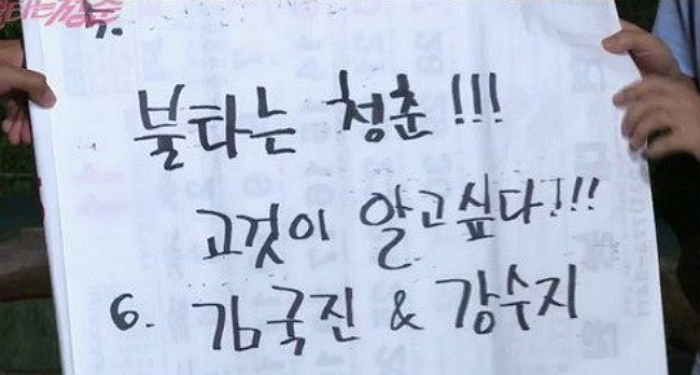 불타는 청춘!!!
고것이 알고싶다!!!
6. 김국진 & 강수지